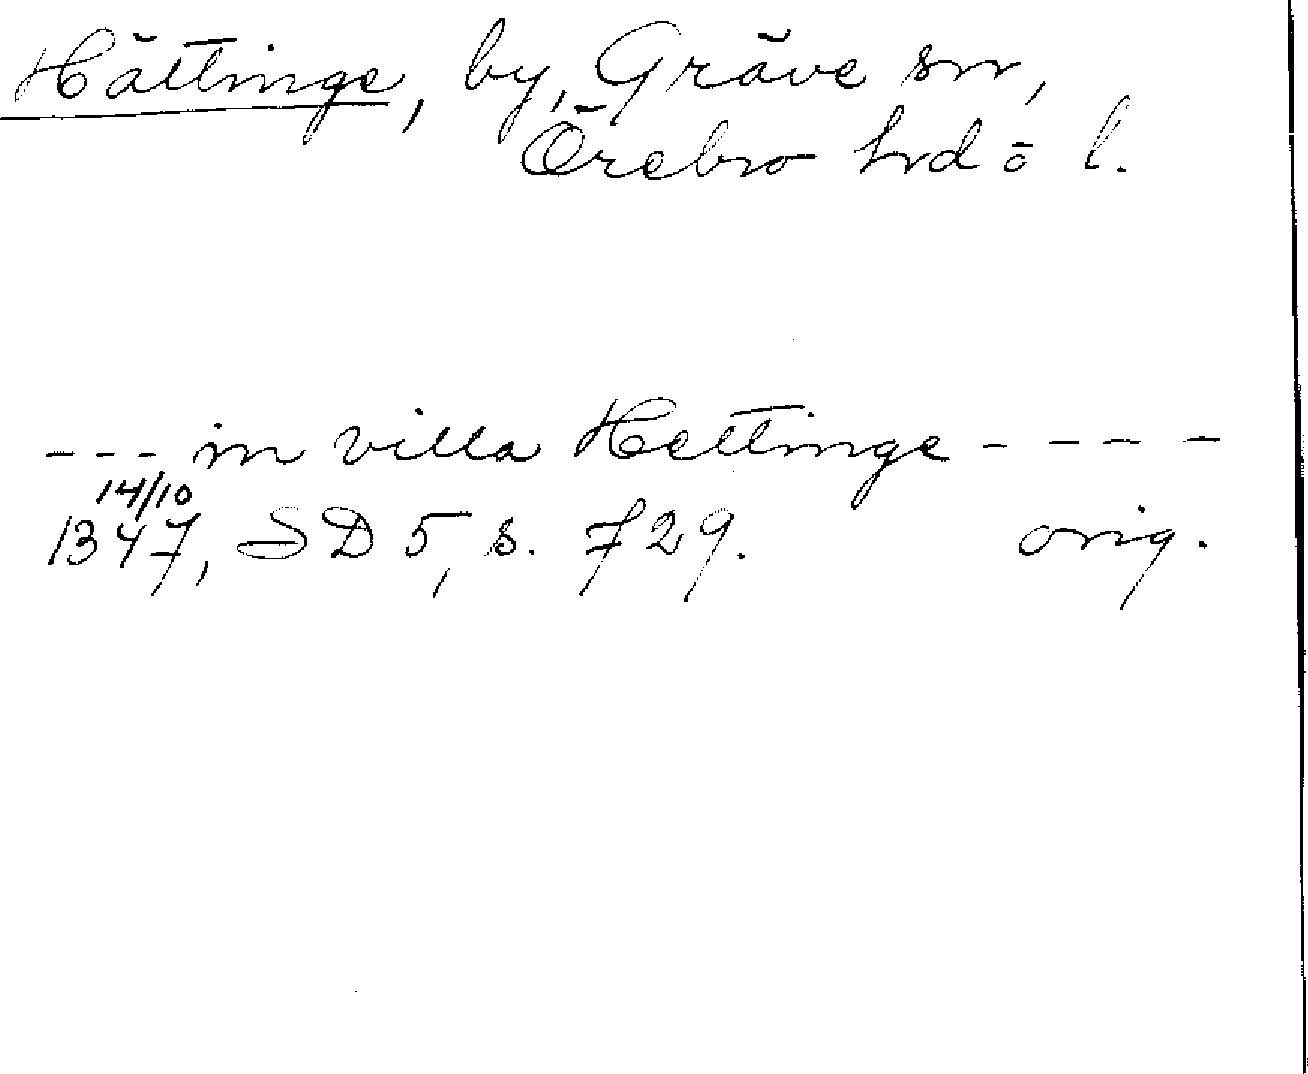 Hättinge, by, Gräve sn,
Örebro hrd o l.
--- in villa Hettinge ----
14/10
1347, SD 5, s. 729. orig.